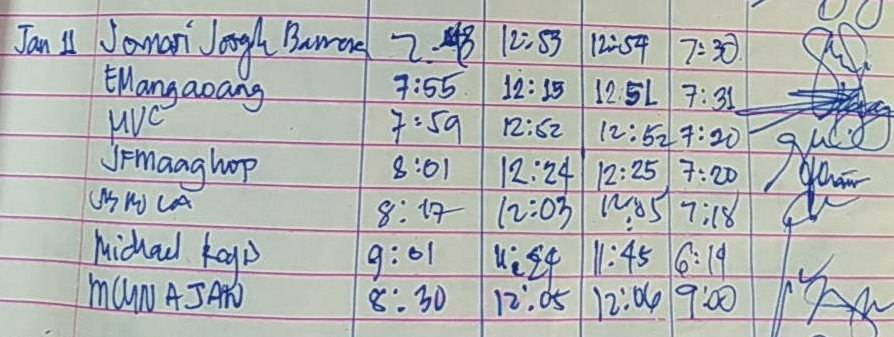 Jan 11 Jomari 12:53 12:54 7:30
EMangaoang 7:55 12:15 12:51 7:31
MVC 7:59 12:52 12:52 7:20
JFmaaghop 8:01 12:24 12:25 7:20
8:17 12:03 12:05 7:18
Michael 9:01 11:45 6:19
8:30 12:05 12:06 9:00